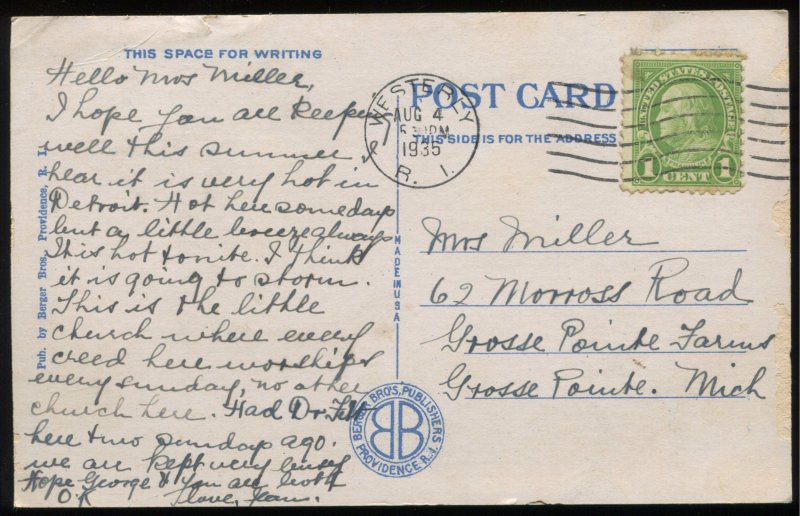 THIS SPACE FOR WRITING
Hello Mrs Miller,
I hope you all keeping
well this summer, I
hear it is very hot in
Detroit. Hot here some days
but a little breeze always
This hot tonite. I think
it is going to storm.
This is the little
church where every
creed here worships
every sunday, no other
church here. Had Dr
here two sundays ago.
we are kept very busy
Hope George & you are both
O.K love, Jean.
Pub. by Berger Bros., Providence, R. I.
MADE IN USA
POST CARD
THIS SIDE IS FOR THE ADDRESS
WESTERLY
AUG 4
5 30 PM
1935
R. I.
UNITED STATES POSTAGE
1 CENT 1
Mrs Miller
62 Morross Road
Grosse Pointe Farms
Grosse Pointe. Mich
BERGER BRO'S, PUBLISHERS
BB
PROVIDENCE R. I.